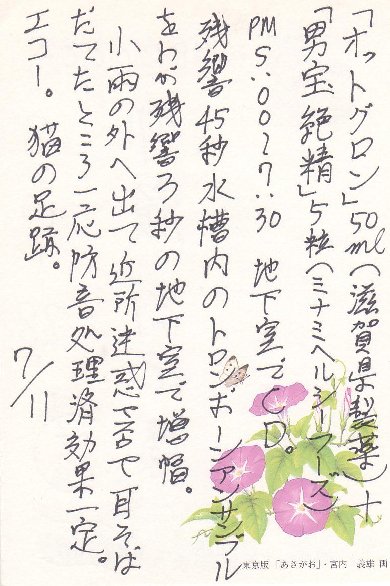 「オットグロン」50ml(滋賀県製薬)+
「男宝絶精」5粒(ミナミヘルシーフーズ)
PM5:00〜7:30 地下室でCD。
残響45秒水槽内のトロンボーンアンサンブル
をわが残響3秒の地下室で増幅。
小雨の外へ出て近所迷惑で否や耳そば
だてたところ一応防音処理済効果一定。
エコー。猫の足跡。
7/11
東京版「あさがお」・宮内 義雄 画